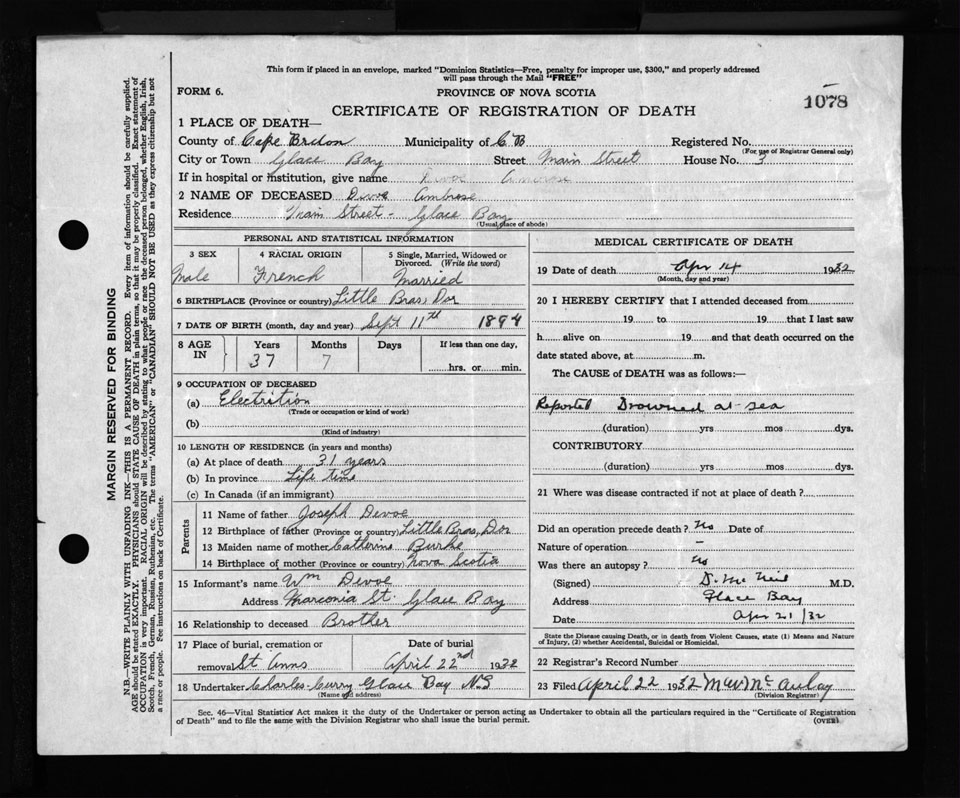 This form if placed in an envelope, marked "Dominion Statistics—Free, penalty for improper use, $300," and properly addressed
will pass through the Mail "FREE"
FORM 6.
PROVINCE OF NOVA SCOTIA
1078
CERTIFICATE OF REGISTRATION OF DEATH
1 PLACE OF DEATH—
County of Cape Breton Municipality of C B Registered No.
(For use of Registrar General only)
City or Town Glace Bay Street Main Street House No. 3
If in hospital or institution, give name Devoe Ambrose
2 NAME OF DECEASED Devoe Ambrose
Residence Main Street - Glace Bay
(Usual place of abode)
PERSONAL AND STATISTICAL INFORMATION
3 SEX 4 RACIAL ORIGIN 5 Single, Married, Widowed or
Divorced. (Write the word)
Male French Married
6 BIRTHPLACE (Province or country) Little Bras, Dor
7 DATE OF BIRTH (month, day and year) Sept 11th 1894
8 AGE IN Years Months Days If less than one day,
37 7 hrs. or min.
9 OCCUPATION OF DECEASED
(a) Electrition
(Trade or occupation or kind of work)
(b)
(Kind of industry)
10 LENGTH OF RESIDENCE (in years and months)
(a) At place of death 31 years
(b) In province Life time
(c) In Canada (if an immigrant)
Parents
11 Name of father Joseph Devoe
12 Birthplace of father (Province or country) Little Bras, Dor
13 Maiden name of mother Catherine Burke
14 Birthplace of mother (Province or country) Nova Scotia
15 Informant's name Wm Devoe
Address Marconia St. Glace Bay
16 Relationship to deceased Brother
17 Place of burial, cremation or Date of burial
removal St Anns April 22nd 1932
18 Undertaker Charles Curry Glace Bay N.S
(Name and address)
MEDICAL CERTIFICATE OF DEATH
19 Date of death Apr 14 1932
(Month, day and year)
20 I HEREBY CERTIFY that I attended deceased from
19 to 19 that I last saw
h alive on 19 and that death occurred on the
date stated above, at m.
The CAUSE of DEATH was as follows:—
Reported Drowned at sea
(duration) yrs mos dys.
CONTRIBUTORY
(duration) yrs mos dys.
21 Where was disease contracted if not at place of death?
Did an operation precede death? No Date of
Nature of operation –
Was there an autopsy? No
(Signed) D. McNeil M.D.
Address Glace Bay
Date Apr 21/32
State the Disease causing Death, or in death from Violent Causes, state (1) Means and Nature
of Injury, (2) whether Accidental, Suicidal or Homicidal.
22 Registrar's Record Number
23 Filed April 22 1932 McAulay
(Division Registrar)
Sec. 46—Vital Statistics Act makes it the duty of the Undertaker or person acting as Undertaker to obtain all the particulars required in the "Certificate of Registration
of Death" and to file the same with the Division Registrar who shall issue the burial permit.
(OVER)
MARGIN RESERVED FOR BINDING
N.B.—WRITE PLAINLY WITH UNFADING INK—THIS IS A PERMANENT RECORD. Every item of information should be carefully supplied.
AGE should be stated EXACTLY. PHYSICIANS should STATE CAUSE OF DEATH in plain terms, so that it may be properly classified. Exact statement of
OCCUPATION is very important. RACIAL ORIGIN will be described by stating to what people or race the deceased person belonged, whether English, Irish,
Scotch, French, German, Russian, Ruthenian, etc. The terms "AMERICAN" or "CANADIAN" SHOULD NOT BE USED as they express citizenship but not
a race or people. See instructions on back of Certificate.